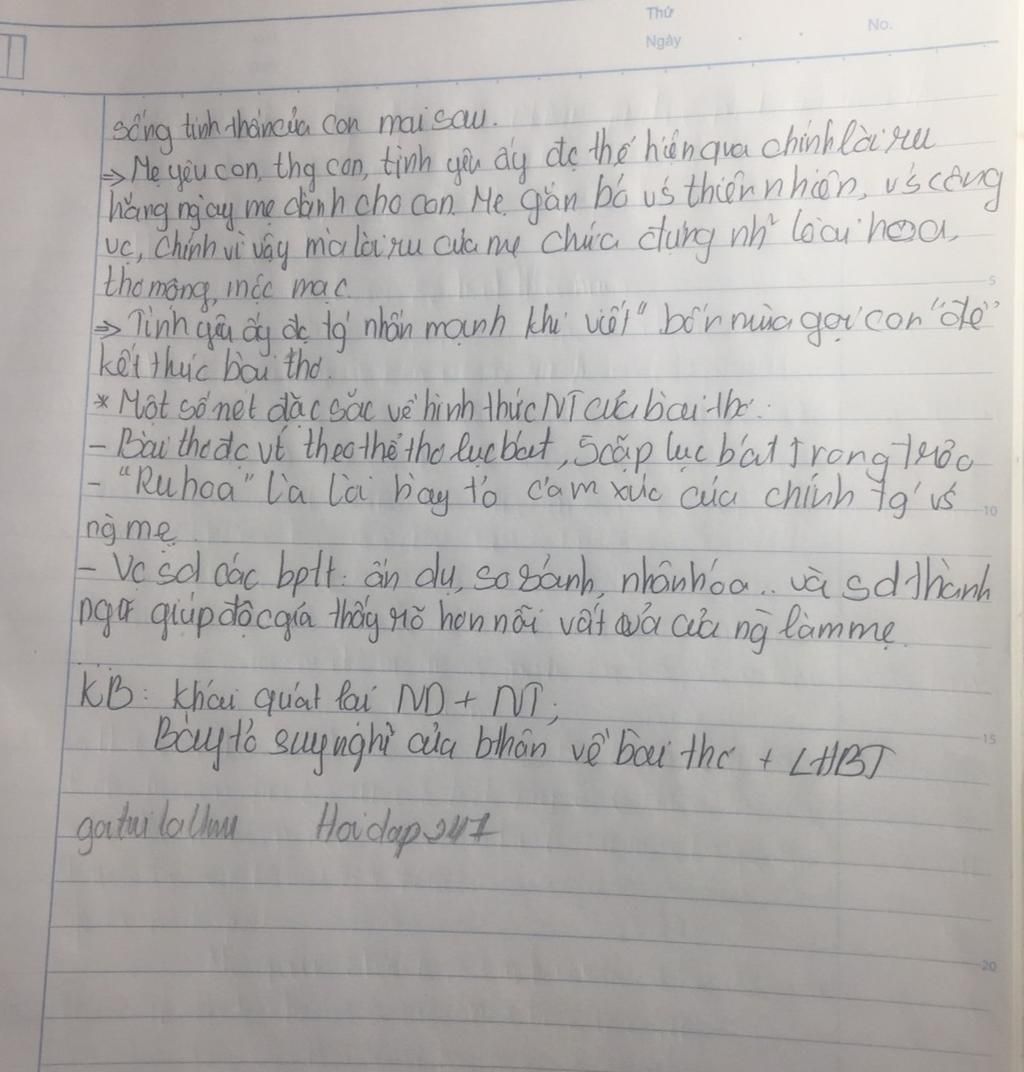 Thứ
No.
Ngày
sống tinh thần của con mai sau.
⇒ Mẹ yêu con, thg con, tình yêu ấy đc thể hiện qua chính lời ru
hằng ngày mẹ dành cho con. Mẹ gắn bó vs thiên nhiên, vs công
vc, chính vì vậy mà lời ru của mẹ chứa đựng nh~ loài hoa,
thơ mộng, mộc mạc.
5
⇒ Tình yêu ấy đc tg nhấn mạnh khi viết " bốn mùa gọi con" để
kết thúc bài thơ.
* Một số nét đặc sắc về hình thức NT của bài thơ:
- Bài thơ đc vt theo thể thơ lục bát, 5 cặp lục bát trong
- "Ru hoa" là lời bày tỏ cảm xúc của chính tg vs
10
ng mẹ
- Vc sd các bptt: ẩn dụ, so sánh, nhân hóa.. và sd thành
ngữ giúp độc giả thấy rõ hơn nỗi vất vả của ng làm mẹ.
KB: Khái quát lại ND + NT;
Bày tỏ suy nghĩ của bthân về bài thơ + LHBT
15
Hoidap247
20